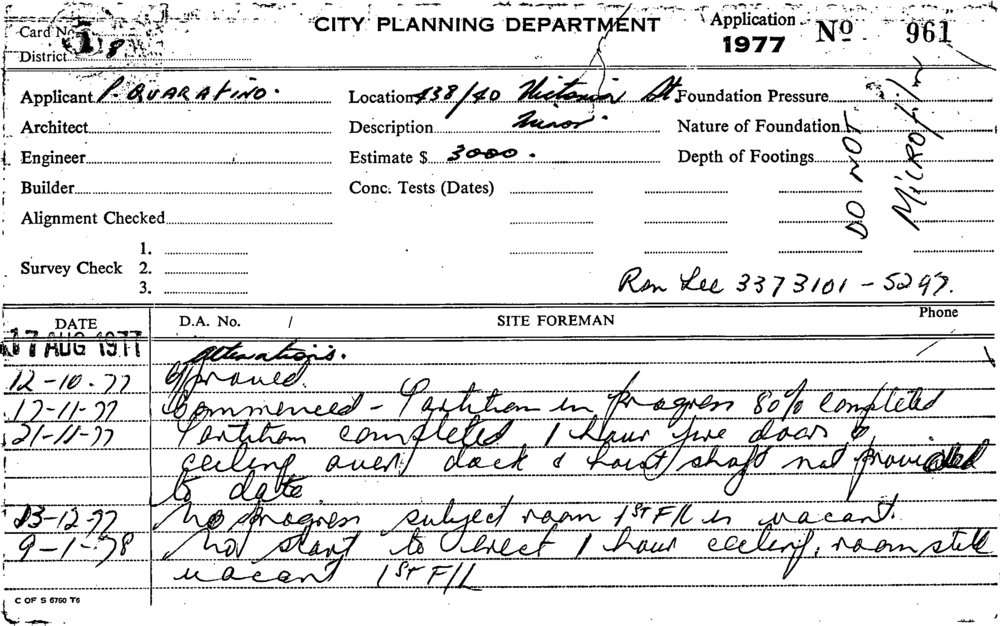 CITY PLANNING DEPARTMENT
Card No. 1
District 8
Application 1977 No 961
Applicant P. QUARATINO.
Location 438/40 Victoria St.
Foundation Pressure
Architect
Description Minor.
Nature of Foundation
Engineer
Estimate $ 3000.
Depth of Footings
Builder
Conc. Tests (Dates)
Alignment Checked
DO NOT
MICROfilm
Survey Check 1.
2.
3.
Ron Lee 3373101 - 5297.
DATE D.A. No. / SITE FOREMAN Phone
17 AUG 1977 alterations.
12-10-77 approved.
17-11-77 Commenced - Partition in progress 80% completed
21-11-77 Partition completed 1 hour fire doors &
ceiling over dock & hoist shaft not provided
to date
13-12-77 No progress subject room 1ST F/L is vacant.
9-1-78 No start to erect 1 hour ceiling, room still
vacant 1ST F/L
C OF S 6760 T6